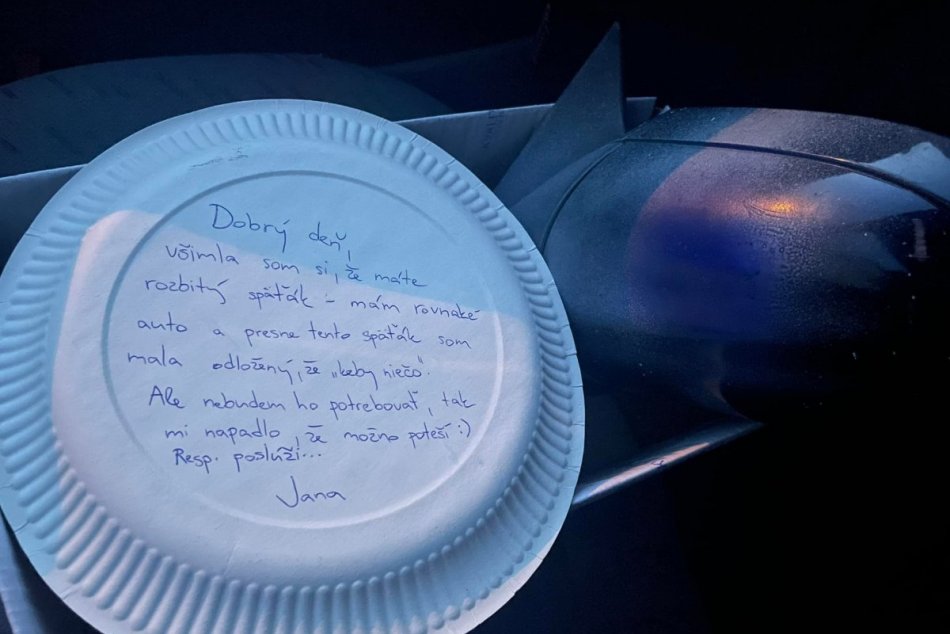 Dobrý deň,
všimla som si, že máte
rozbitý späťák - mám rovnaké
auto a presne tento späťák som
mala odložený, že "keby niečo".
Ale nebudem ho potrebovať, tak
mi napadlo, že možno poteší :)
Resp. poslúži...
Jana